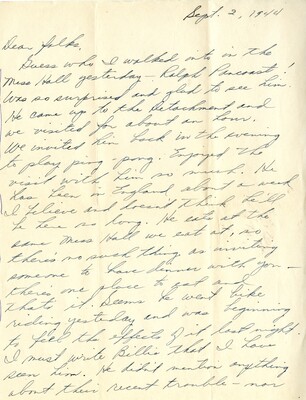 Sept. 2, 1944
Dear folks,
Guess who I walked into in the
Mess Hall yesterday - Ralph Pancoast!
Was so surprised and glad to see him.
He came up to the Detachment and
we visited for about an hour.
We invited him back in the evening
to play ping-pong. Enjoyed the
visit with him so much. He
has been in England about a week
I believe and doesn't think he'll
be here so long. He eats at the
same Mess Hall we eat at, so
there's no such thing as inviting
someone to have dinner with you -
there's one place to eat and
thats it. Seems he went bike
riding yesterday and was beginning
to feel the effects of it last night.
I must write Billie that I have
seen him. He didn't mention anything
about their recent trouble - nor